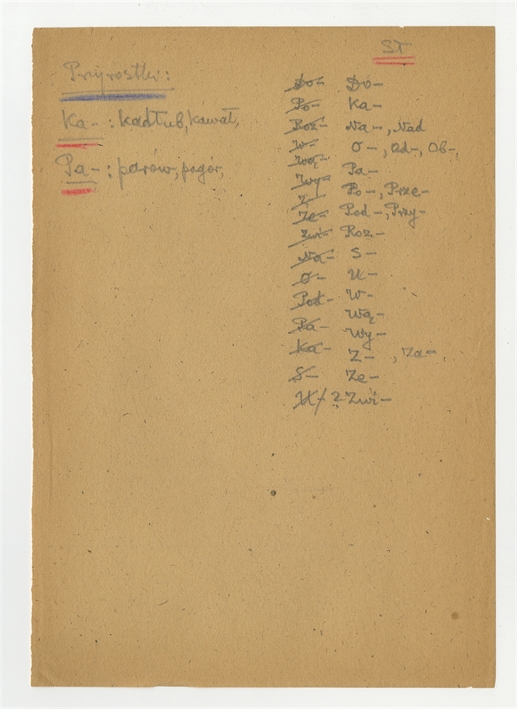 ST
Przyrostki:
Ka- : kadłub, kawał,
Pa- : parów, pagór,
Do- Do-
Po- Ka-
Roz- Na-, Nad
W- O-, Od-, Ob-,
Wą- Pa-
Wy- Po-, Prze-
Z- Pod-, Przy-
Ze- Roz-
Zwi- S-
Na- U-
O- W-
Pod- Wą-
Pa- Wy-
Ka- Z- , Za-,
S- Ze-
U/ ? Zwi-